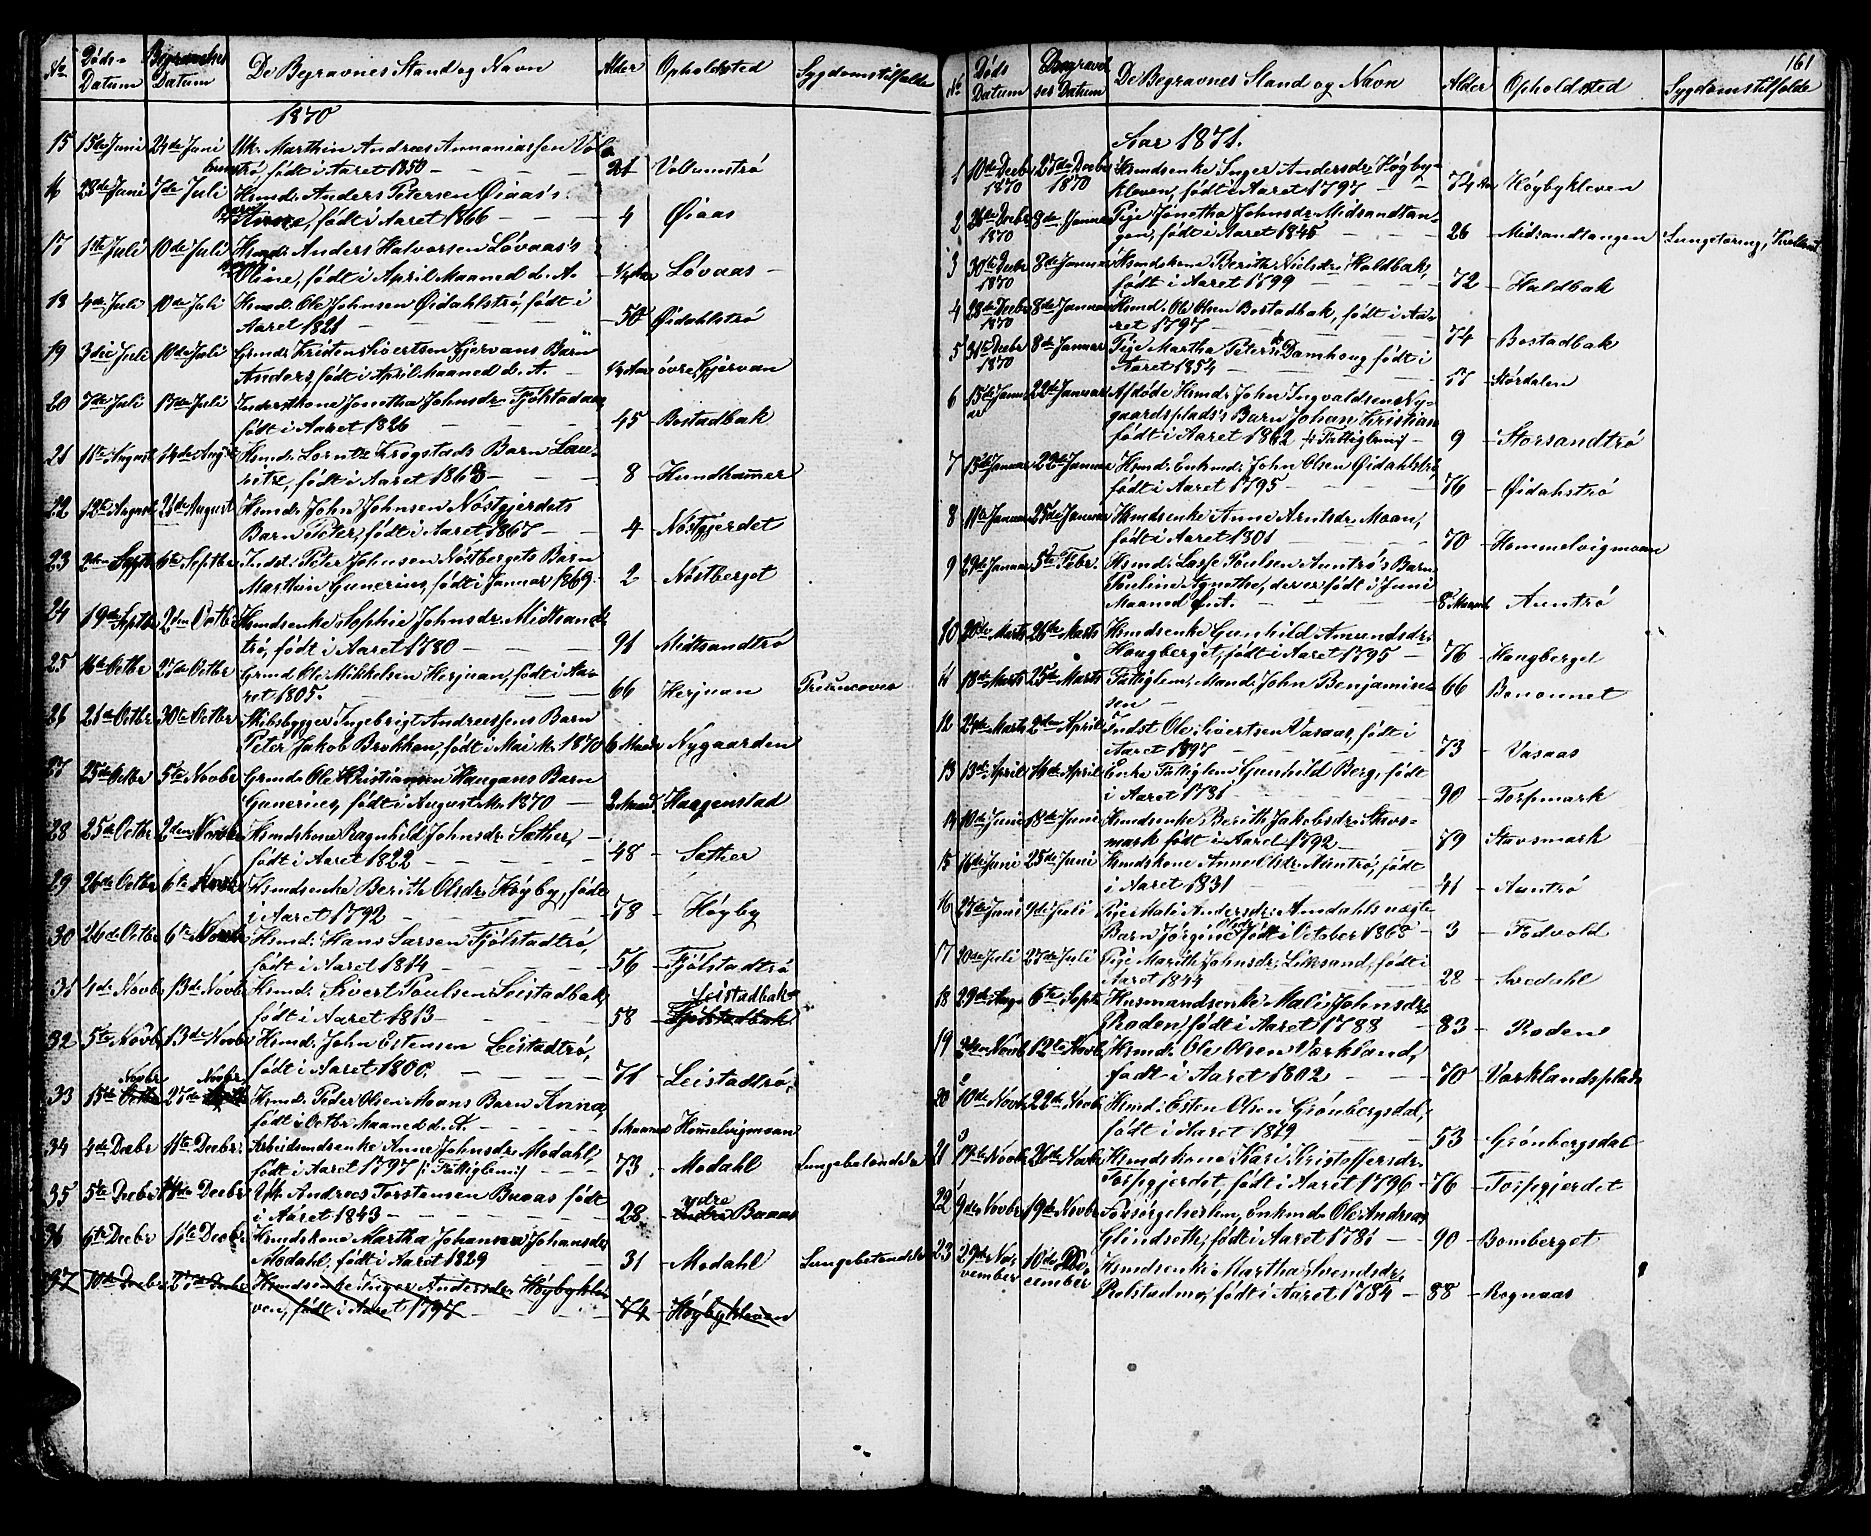 No. Døds-Datum Begravelses Datum De Begravnes Stand og Navn Alder Opholdsted Sygdomstilfælde
1870
15 15de Juni 24de Juni Uk. Marthin Andreas Annaniassen Vol-
umstrø, født i Aaret 1850 – 21 Vollumstrø
16 28de Juni 7de Juli Hsmd. Anders Petersen Øiaas's
Barn født i Aaret 1866 – 4 Øiaas
17 1ste Juli 10de Juli Hsmd. Anders Halvorsen Løvaas's
Oline, født i April Maaned d. A. ¼ Aar Løvaas
18 4de Juli 10de Juli Hsmd. Ole Johnsen Øidahlstrø, født i
Aaret 1821 – 50 Øidahlstrø
19 3die Juli 10de Juli Grmd. Kristen Sivertsen Gjervans Barn
Anders, født i April Maaned d. A. – ¼ Aar øvre Gjervan
20 7de Juli 17de Juli Inderstkone Jonetha Johnsdr. Fjølstadaas
født i Aaret 1826 – 45 Bostadbak
21 11te August 14de August Hsmd. Lorntz Krogstads Barn Lau-
ritz, født i Aaret 1863 – 8 Hundhammer
22 12te August 21de August Hsmd. John Johnsen Nøstgjerdets
Barn Peter, født i Aaret 1867 – 4 Nøstgjerdet
23 2den Septbr 6te Septbr Indst. Peter Johnsen Nøstbergets Barn
Marthin Gunerius, født i Januar 1869 2 Nøstberget
24 19de Septbr 2den Octbr Hsmdsenke Sophie Johnsdr. Midtsand-
trø, født i Aaret 1780 – 91 Midtsandtrø
25 16de Octbr 27de Octbr Grmd. Ole Mikkelsen Herjuan, født i Aa-
ret 1805. – 66 Herjuan
26 21de Octbr 30te Octbr Skibsbygger Ingebrigt Andreassens Barn
Peter Jakob Brokhan, født i Mai M. 1870 6 Maan. Nygaarden
27 25de Octbr 5te Novbr Grmd. Ole Kristiansen Haugans Barn
Gunerius, født i August M. 1870 – 2 Maan. Haugenstad
28 25de Octbr 2den Novbr Hsmdskone Ragnhild Johnsdr. Sæther, –
født i Aaret 1822 – 48 Sæther
29 26de Octbr 6te Novbr Hsmdsenke Berith Olsdr. Høyby, født
i Aaret 1792 – 78 Høyby
30 26de Octbr 6te Novbr Hsmd. Hans Larsen Fjølstadtrø,
født i Aaret 1814 – 56 Fjølstadtrø
31 4de Novbr 13de Novbr Hsmd. Sivert Poulsen Leistadbak,
født i Aaret 1813 – 58 Leistadbak
32 5te Novbr 13de Novbr Hsmd. John Estensen Leistadtrø,
født i Aaret 1800. – 71 Leistadtrø
33 15de Novbr 27de Novbr Hsmd. Peder Olsen Moans Barn Anna,
født i Octbr Maaned d. A. – 1 Maaned Hommelvigmoan
34 4de Decbr 11te Decbr. Arbeidmdsenke Anne Johnsdr. Modahl,
født i Aaret 1797 /: Fattiglem :/ 73 Modahl Lungebetændelse
35 5te Decbr 11te Decbr Uk. Andreas Torstensen Buaas født
i Aaret 1843 – 28 ydre Buaas
36 6te Decbr 11te Decbr Hsmdskone Martha Johanna Johansdr
Modahl, født i Aaret 1829 31 Modahl Lungebetændelse
37 10de Decbr 27de Decbr Hsmdsenke Inger Andersdr. Høybykle-
ven, født i Aaret 1797 74 Høybykleven
161
No. Døds Datum Begravelses Datum De Begravnes Stand og Navn Alder Opholdsted Sygdomstilfælde
Aar 1871.
1 10de Decbr 1870 27de Decbr 1870 Hsmdsenke Inger Andersdr. Høyby-
kleven, født i Aaret 1797 – 74 Aar Høybykleven
2 26de Decbr 1870 8de Januar Pige Jonetha Johnsdr. Midsandtan-
gen, født i Aaret 1845 – 26 Midsandtangen Lungetæring,
3 30te Decbr 1870 8de Januar Hsmdskone Berith Nielsdr. Haldbak,
født i Aaret 1799 72 Haldbak
4 28de Decbr 1870 8de Januar Hsmd. Ole Olsen Bostadbak, født i Aa-
ret 1797 – 74 Bostadbak
5 31te Decbr 1870 8de Januar Pige Martha Petersdr. Damhoug født i
Aaret 1854 – 17 Størdalen
6 15de Januar 22de Januar Afdøde Hsmd. John Ingvaldsen Ny-
gaardsplads's Barn Johan Kristian
født i Aaret 1862 /: Fattiglem :/ – 9 Storsandtrø
7 13de Januar 22de Januar Hsmd. Enkmd. John Olsen Øidahlstrø,
født i Aaret 1795 – 76 Øidahstrø
8 11te Januar 25de Januar Hsmdsenke Anne Arntsdr. Moan,
født i Aaret 1801 – 70 Hommelvigmoan
9 29de Januar 5te Febr. Hsmd. Lasse Poulsen Auntrø's Barn
Pauline Agnethe, der er født i Juni
Maaned f. A. – 8 Maaned Auntrø
10 20de Marts 26de Marts Hsmdsenke Gunhild Amundsdr.
Haugberget, født i Aaret 1795 – 76 Haugberget
11 18de Marts 25de Marts Fattiglem, Mand. John Benjamin-
sen – 66 Bonounet
12 24de Marts 2den April Indst Ole Sivertsen Vasaas, født i
Aaret 1897 – 73 Vasaas
13 13de April 16de April Enke Fattiglem Gunhild Berg, født
i Aaret 1781 – 90 Torpmark
14 10de Juni 18de Juni Hsmdsenke Berith Jakobsdr. Stavs-
mark født i Aaret 1792 – 79 Stavsmark
15 16de Juni 25de Juni Hsmdskone Anne Olsdr. Auntrø, født
i Aaret 1831 – 41 Auntrø
16 27de Juni 9de Juli Pige Mali Andersdr. Amdahls uægte
Barn Jørgine født i October 1868 – 3 Fodvold
17 20de Juli 27de Juli Pige Marith Johnsdr. Liksand, født i
Aaret 1844 28 Svedahl
18 29de Aug. 6te Septb. Husmandsenke Mali Johnsdr.
Roden, født i Aaret 1788 – 83 Roden
19 2den Novb. 12te Novb. Hsmd. Ole Olsen Værkland,
født i Aaret 1802 – 70 Værklandsplads
20 10de Novb. 22de Novb. Hsmd. Esten Olsen Grønbergsdal,
født i Aaret 1819 – 53 Grønbergsdal
21 17de Novbr 26de Novbr Hsmdskone Kari Kristoffersdr.
Torpgjerdet, født i Aaret 1796 – 76 Torpgjerdet
22 9de Novbr 19de Novbr Forsørgelseslem, Enkmd. Ole Andreas
Glindseth, født i Aaret 1781 – 90 Bomberget
23 29de November 10de December Hsmdsenke Martha Svendsdr.
Rolstadmo, født i Aaret 1784 – 88 Rognaas